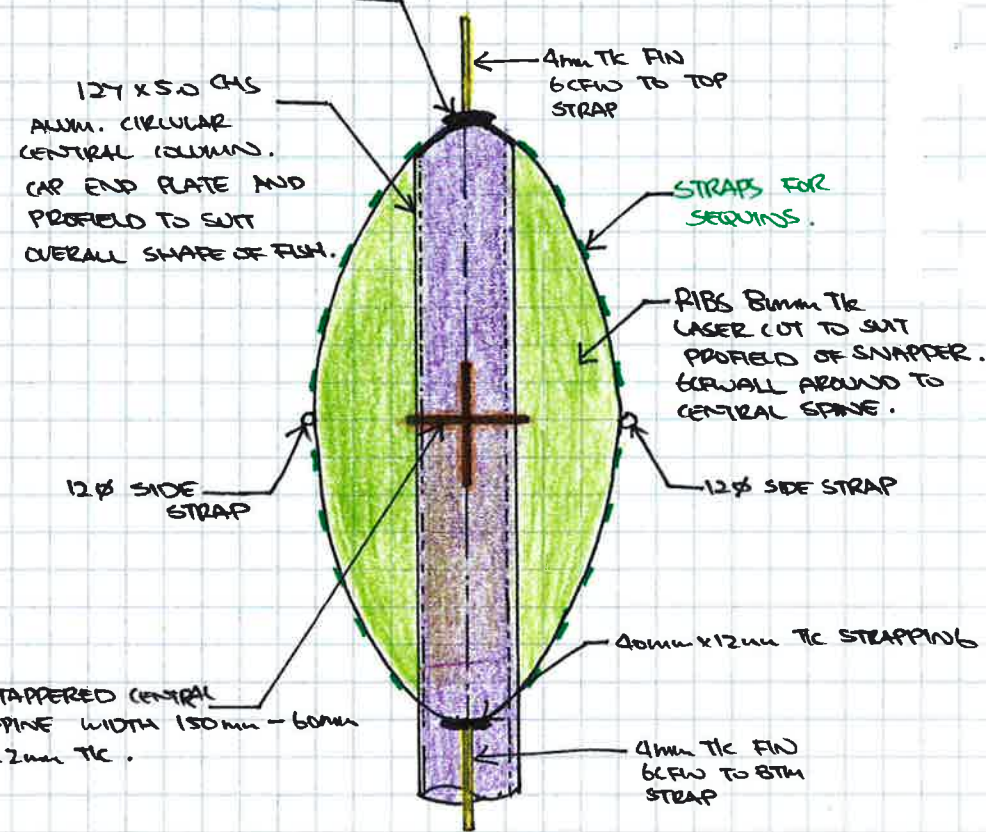 4mm TK FIN
6CFW TO TOP
STRAP
127 x 5.0 CHS
ALUM. CIRCULAR
CENTRAL COLUMN.
CAP END PLATE AND
PROFIELD TO SUIT
OVERALL SHAPE OF FISH.
STRAPS FOR
SEQUINS.
RIBS 8mm TK
LASER CUT TO SUIT
PROFIELD OF SNAPPER.
6CFW ALL AROUND TO
CENTRAL SPINE.
12Ø SIDE
STRAP
12Ø SIDE STRAP
40mm x 12mm TK STRAPPING
TAPPERED CENTRAL
SPINE WIDTH 150mm - 60mm
12mm TK.
4mm TK FIN
6CFW TO BTM
STRAP